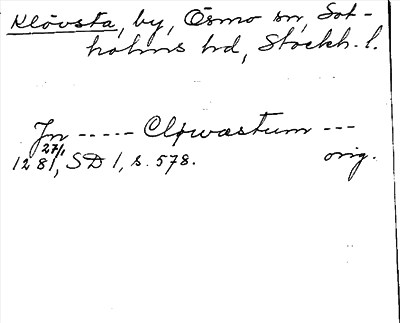 Klövsta, by, Ösmo sn, Sot-
holms hd, Stockh. l.
Jn ----- Cløwastum ---
1281 27/1, SD 1, s. 578. orig.